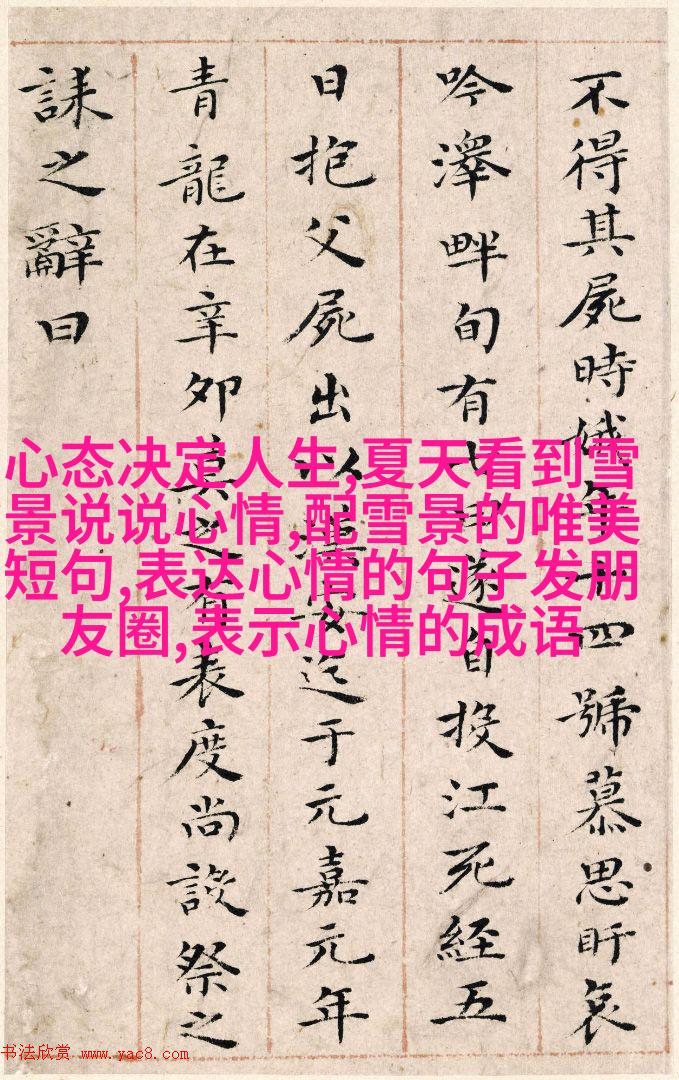 不得其屍時娥年十四號慕思盱哀
吟澤畔旬有七日遂自投江死經五
日抱父屍出以漢安迄于元嘉元年
青龍在辛卯莫之有表度尚設祭之
誄之辭曰
心态决定人生,夏天看到雪
景说说心情,配雪景的唯美
短句,表达心情的句子发朋
友圈,表示心情的成语
书法欣赏 www.yac8.com